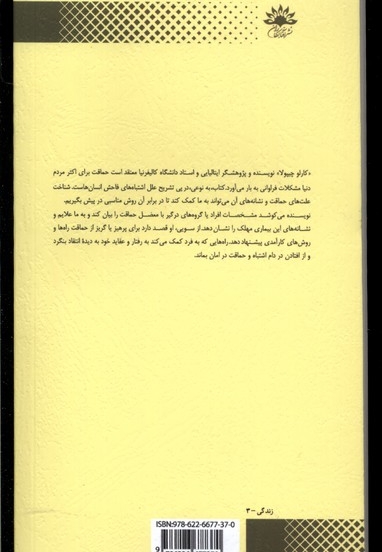 «کارلو چیپولا» نویسنده و پژوهشگر ایتالیایی و استاد دانشگاه کالیفرنیا معتقد است حماقت برای اکثر مردم
دنیا مشکلات فراوانی به بار می‌آورد. کتاب، به نوعی، در پی تشریح علل اشتباه‌های فاحش انسان‌هاست. شناخت
علت‌های حماقت و نشانه‌های آن می‌تواند به ما کمک کند تا در برابر آن روش مناسبی در پیش بگیریم.
نویسنده می‌کوشد مشخصات افراد یا گروه‌های درگیر با معضل حماقت را بیان کند و به ما علایم و
نشانه‌های این بیماری مهلک را نشان دهد. از سویی، او قصد دارد برای پرهیز یا گریز از حماقت راه‌ها و
روش‌های کارآمدی پیشنهاد دهد. راه‌هایی که به فرد کمک می‌کند به رفتار و عقاید خود به دیدهٔ انتقاد بنگرد
و از افتادن در دام اشتباه و حماقت در امان بماند.
زندگی - ۳
ISBN:978-622-6677-37-0